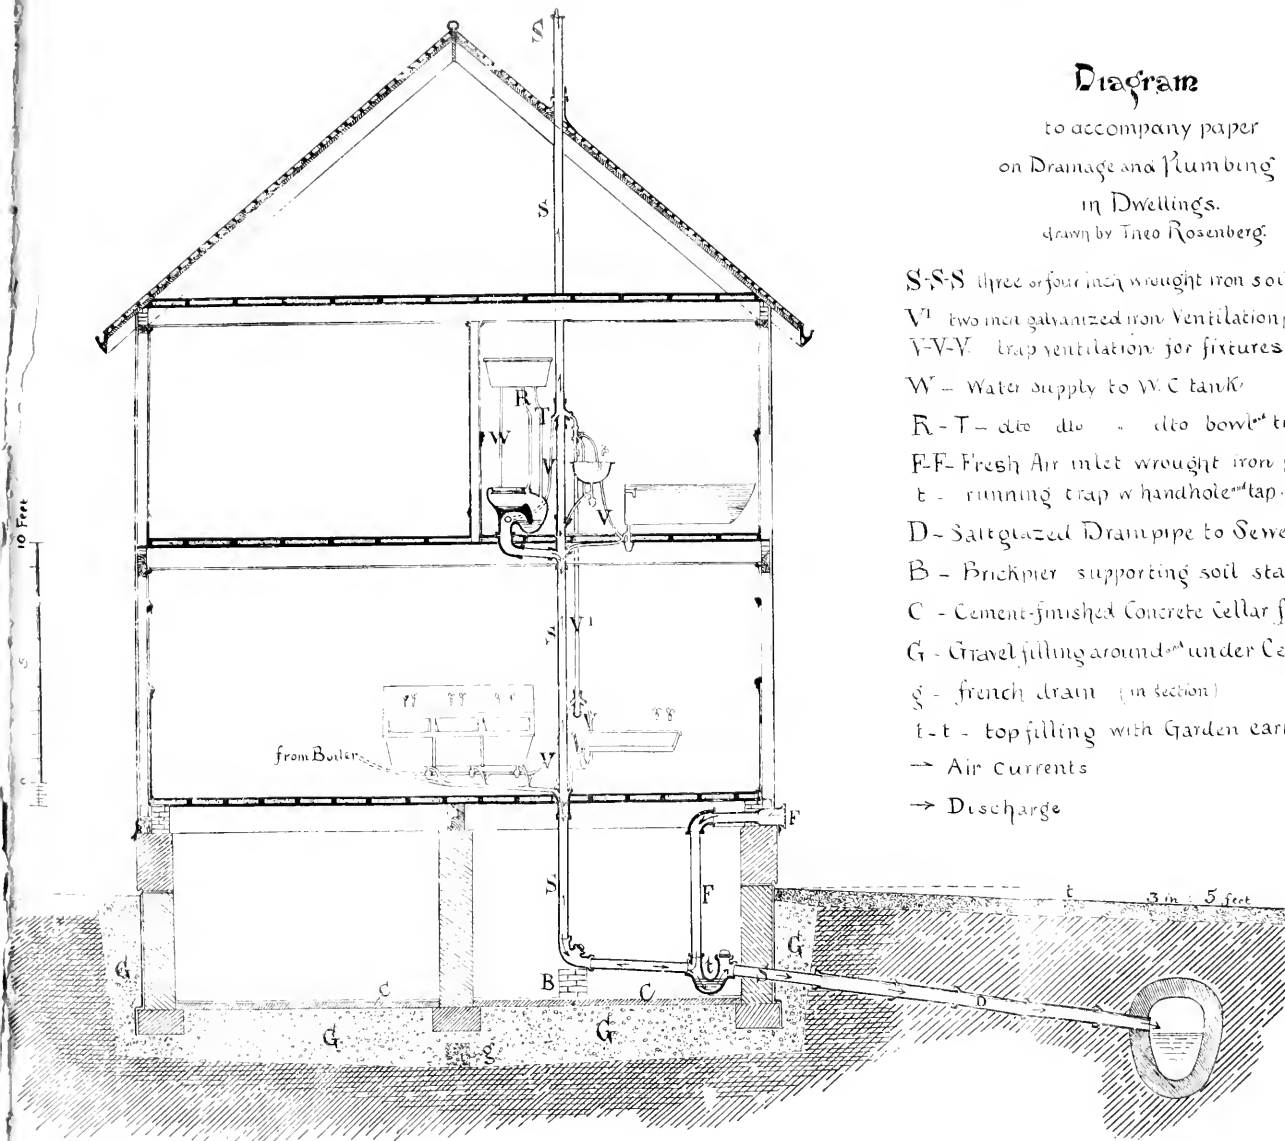 Diagram
to accompany paper
on Drainage and Plumbing
in Dwellings.
drawn by Theo Rosenberg.
S-S-S three or four inch wrought iron soi
V¹ two inch galvanized iron Ventilation
V-V-V. trap ventilation for fixtures
W - Water supply to W.C tank
R - T - dto dto " dto bowl and t
F-F- Fresh Air inlet wrought iron
t - running trap w handhole and tap.
D - Saltglazed Drainpipe to Sewe
B - Brickpier supporting soil sta
C - Cement-finished Concrete Cellar f
G - Gravel filling around and under Ce
g - french drain (in section)
t-t - top filling with Garden ear
→ Air Currents
→ Discharge
S
S
R
T
W
V
V
10 Feet
5
S
V¹
V
V
from Boiler
F
S
F
t
t
3 in : 5 feet
G
G
B
C
C
S
D
G
G
g